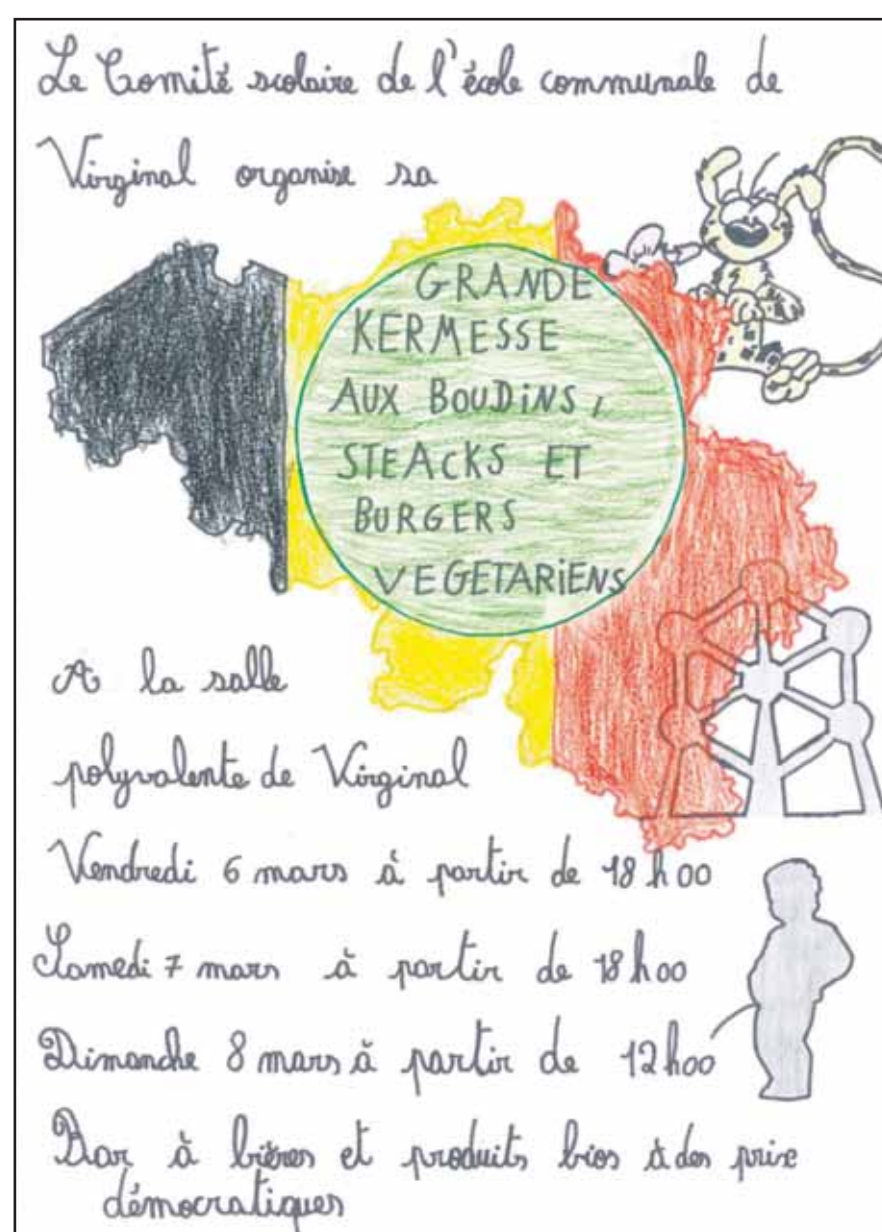 Le Comité scolaire de l'école communale de
Virginal organise sa
GRANDE
KERMESSE
AUX BOUDINS,
STEACKS ET
BURGERS
VEGETARIENS
A la salle
polyvalente de Virginal
Vendredi 6 mars à partir de 18h00
Samedi 7 mars à partir de 18h00
Dimanche 8 mars à partir de 12h00
Bar à bières et produits bios à des prix
démocratiques